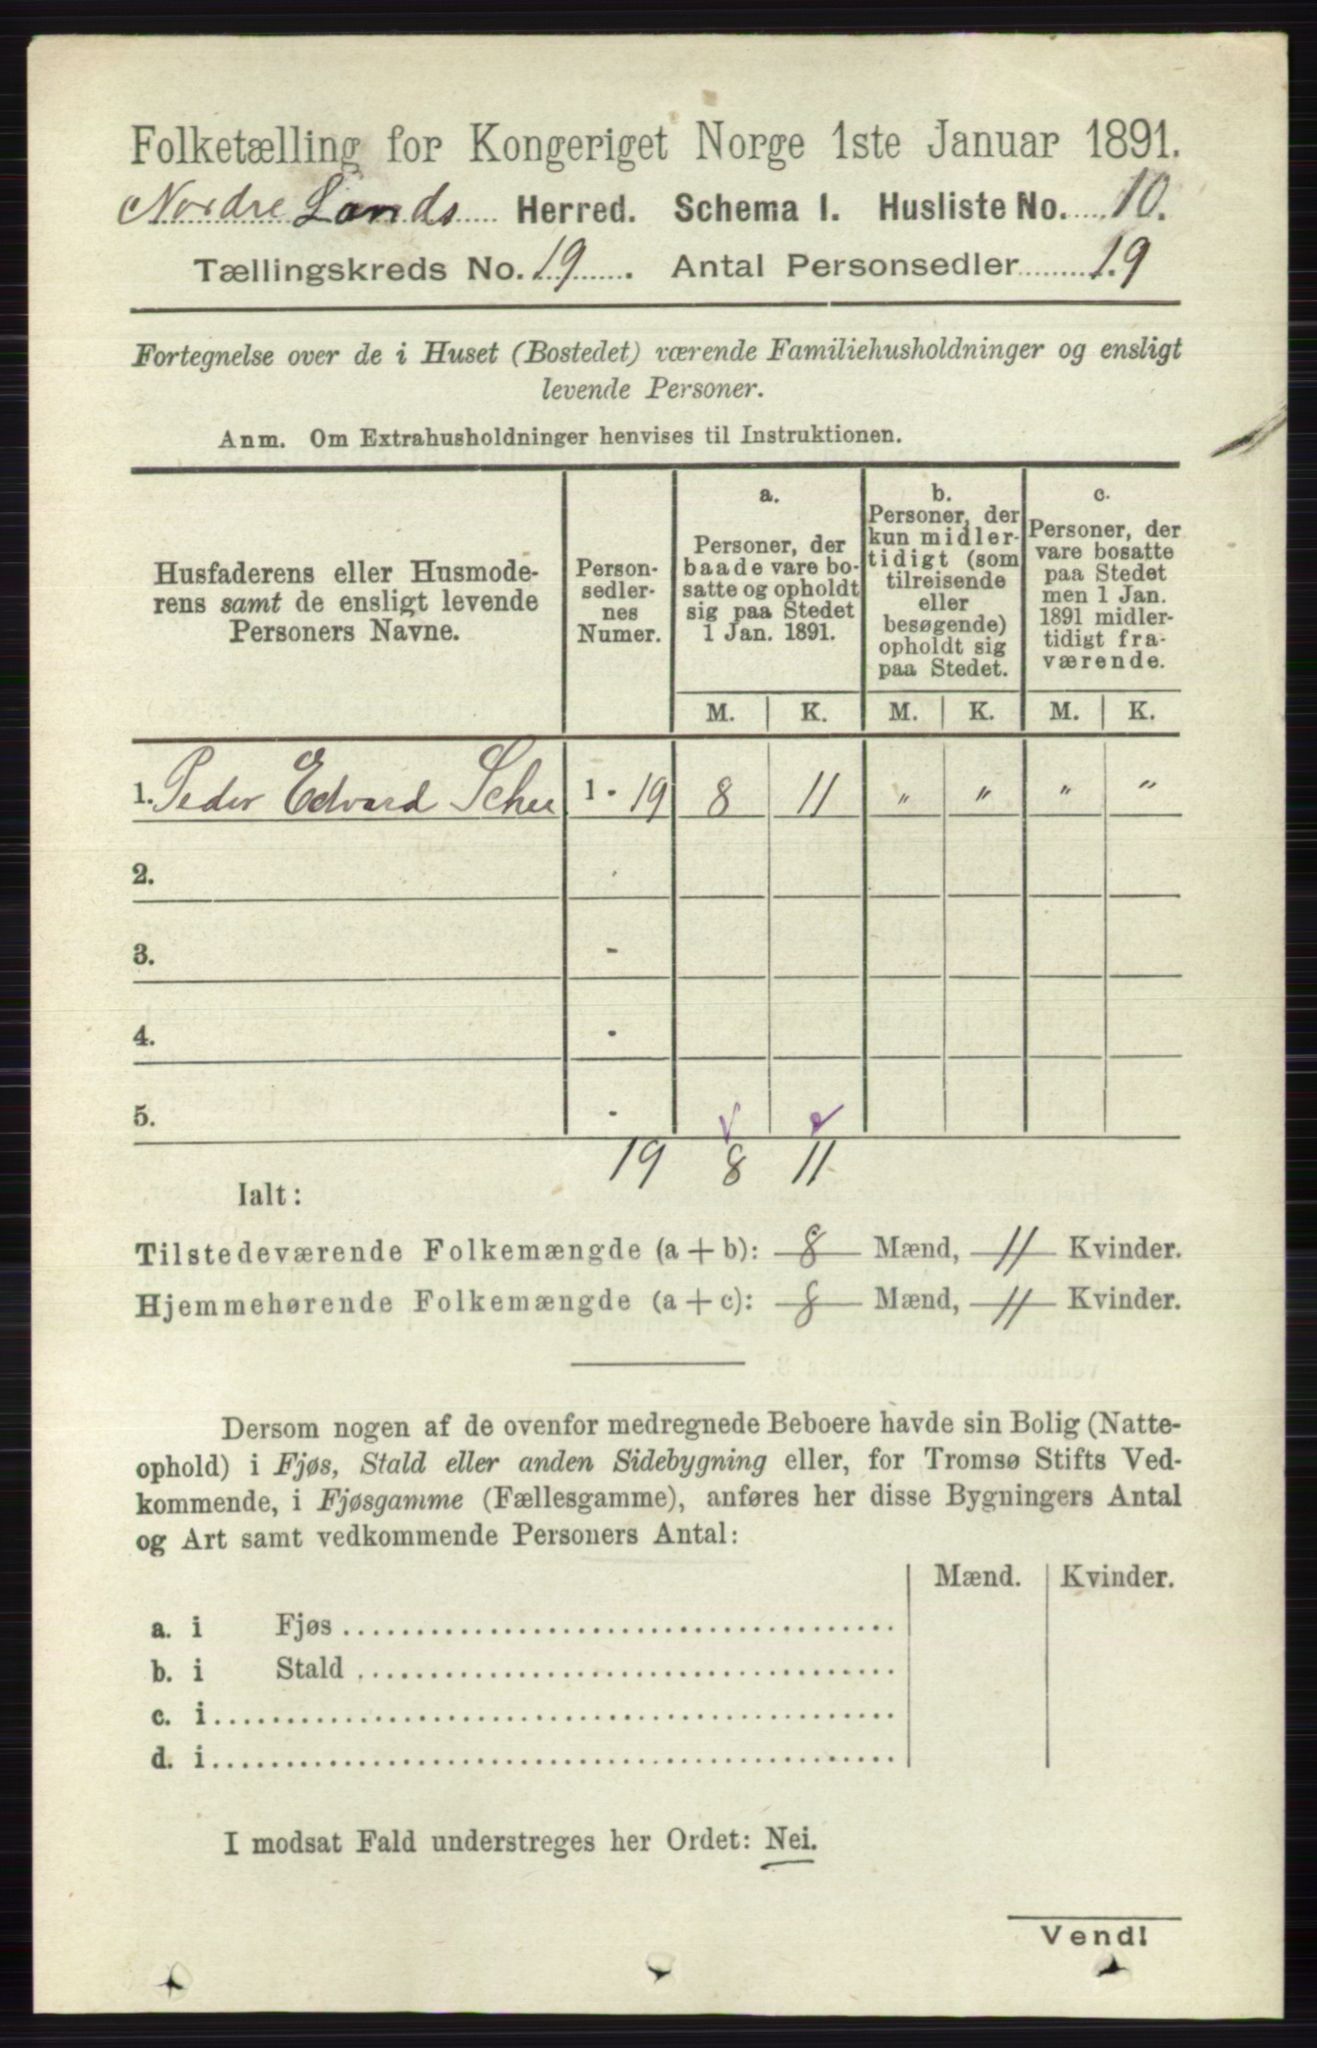 Folketælling for Kongeriget Norge 1ste Januar 1891.
Nordre Lands Herred. Schema I. Husliste No. 10.
Tællingskreds No. 19. Antal Personsedler 19
Fortegnelse over de i Huset (Bostedet) værende Familiehusholdninger og ensligt
levende Personer.
Anm. Om Extrahusholdninger henvises til Instruktionen.
Husfaderens eller Husmode-
rens samt de ensligt levende
Personers Navne.
Person-
sedler-
nes
Numer.
a.
Personer, der
baade vare bo-
satte og opholdt
sig paa Stedet
1 Jan. 1891.
b.
Personer, der
kun midler-
tidigt (som
tilreisende
eller
besøgende)
opholdt sig
paa Stedet.
c.
Personer, der
vare bosatte
paa Stedet
men 1 Jan.
1891 midler-
tidigt fra-
værende.
M. K. M. K. M. K.
1. Peder Edvard Schee 1 - 19 8 11 " " " "
2.
3. -
4. -
5. -
19 8 11
Ialt:
Tilstedeværende Folkemængde (a + b): 8 Mænd, 11 Kvinder.
Hjemmehørende Folkemængde (a + c): 8 Mænd, 11 Kvinder.
Dersom nogen af de ovenfor medregnede Beboere havde sin Bolig (Natte-
ophold) i Fjøs, Stald eller anden Sidebygning eller, for Tromsø Stifts Ved-
kommende, i Fjøsgamme (Fællesgamme), anføres her disse Bygningers Antal
og Art samt vedkommende Personers Antal:
Mænd. Kvinder.
a. i Fjøs
b. i Stald
c. i
d. i
I modsat Fald understreges her Ordet: Nei.
Vend!